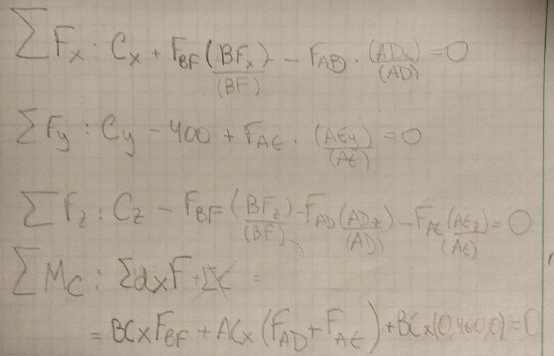 ΣFx : Cx + FBF (BFx)/(BF) - FAD · (ADx)/(AD) = 0
ΣFy : Cy - 400 + FAE · (AEy)/(AE) = 0
ΣFz : Cz - FBF (BFz)/(BF) - FAD (ADz)/(AD) - FAE (AEz)/(AE) = 0
ΣMc : Σd×F + ΣC =
= BC×FBF + AC× (FAD + FAE) + BC×(0,400,0) = 0